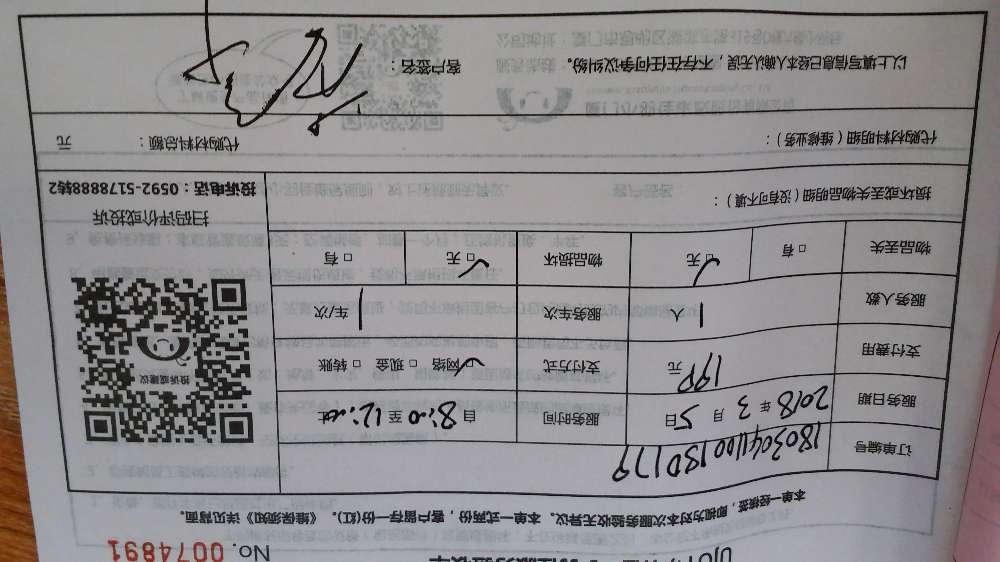 No. 0074891
本单一经核签,即视为对本次服务验收无异议。本单一式两份,客户留存一份(红)。《维保须知》详见背面。
订单编号 180304110018D179
服务日期 2018年3月5日 服务时间 自8:00至12:00时
支付费用 199元 支付方式 ☑网络 □现金 □转账
服务人数 1人 服务车次 1车/次
物品丢失 □有 ☑无 物品损坏 ☑无 □有
投诉或建议
扫码评价或投诉
投诉电话:0592-5178888转2
损坏或丢失物品明细(没有可不填):
代购材料明细(维修业务): 代购材料总额: 元
以上填写信息已经本人确认无误,不存在任何争议纠纷。 客户签名: